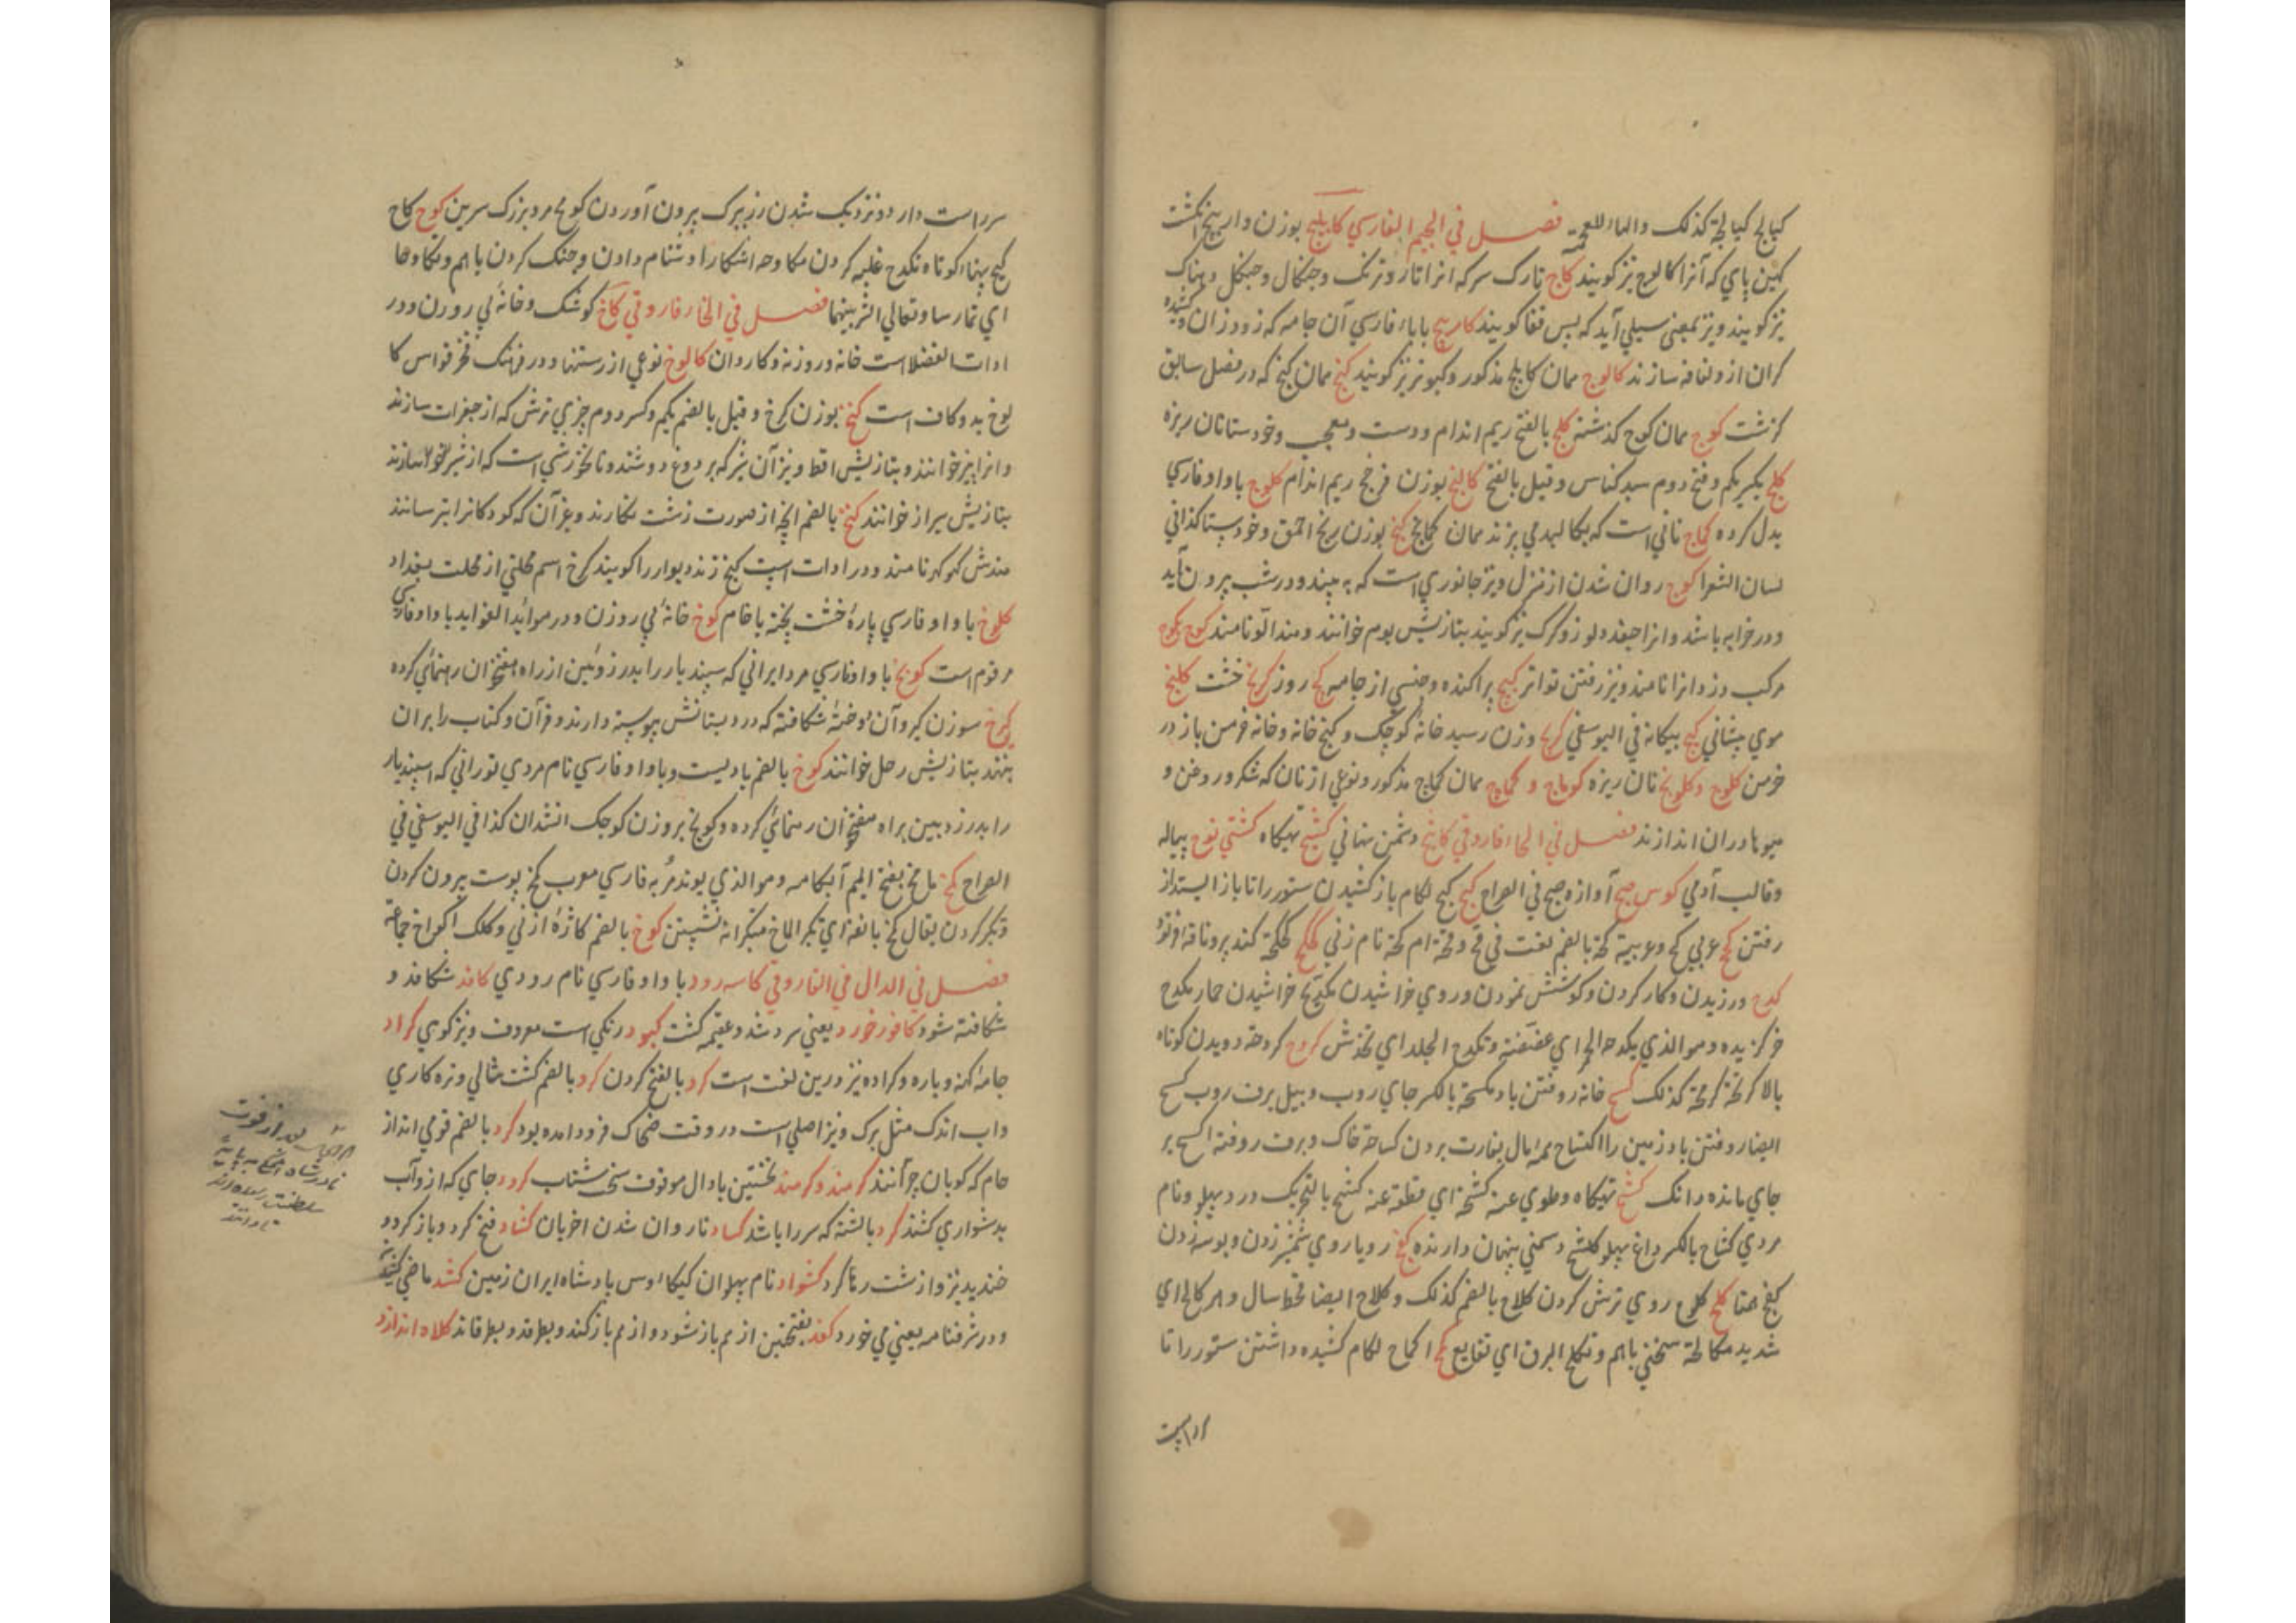 کیالج کیالجة کذلک والهاء للعجمة فصل في الجیم الفارسي کابلیج بوزن واربیخ انگشت
کهین پاي که آنرا کالوج نیز کویند کاج تارک سر که انرا تار و ترنک وجنکال وجنکل و هباک
نیز کویند و نیز بمعنی سیلي آید که پس قفا کویند کامریج باباء فارسي آن جامه که زو وزان وکشیده
کران از و لفافه سازند کالوج همان کابلج مذکور و کبوتر نیز کویند کخ همان کخ که در فصل سابق
کزشت کوج همان کوج کذشته کلج بالفتح ریم اندام و دست و معجب و خودستا نان ریزه
کلج بکسر یکم و فتح دوم سبد کناس و قیل بالفتح کالنج بوزن فرخج ریم اندام کلوج باواو فارسي
بدل کرده کماج ناني است که بکالیدمي پزند همان کماج کنج بوزن رنج احمق و خودستا کذافي
لسان الشعرا کوج روان شدن از منزل و نیز جانوري است که به بیند و در شب بیرون آید
و در خرابه باشد و انرا جغد و لوز و کرک نیز کویند بتازیش بوم خوانند و هند الو نامند کوج کوج
مرکب دزد انرا نامند و نیز رفتن تواتر کیج پراکنده و جنسي از جامه کج روز کریج خشت کلنج
موي پیشاني کج بیکانه في الیوسفي کریج وزن رسید خانه کوچک و کنج خانه و خانه خرمن باز در
خرمن کلوج و کلویج نان ریزه کوماج و کماج همان کماج مذکور و نوعي از نان که شکر و روغن و
میوها دران اندازند فصل في الحاء فاروقي کاشح دشمن نهاني کشح تهیکاه کشتي نوح پیاله
و قالب آدمي کوس صبح آوازه صبح في الصراح کبح کبح لکام باز کشیدن ستور را تا باز ایستد از
رفتن کح عربي کح و عربیة کحة بالضم لغت في قح و قحة ام کحة نام زني کحکح کحکحة کند پیر و ناقه فرتوة
کدح ورزیدن و کار کردن و کوشش نمودن و روي خراشیدن تکدیح خراشیدن حمار مکدح
خر کزیده و هو الذي یکدحه الحمر اي عضضته و تکدح الجلد اي تخدش کردح کردحة دویدن کوتاه
بالا کرتحة کرمحة کذلک کسح خانه روفتن باد مکسحة بالکسر جاي روب و بیل برف روب کسح
ایضا روفتن باد زمین را اکتساح همه مال بغارت بردن کساحة خاک و برف روفته اکسح بر
جاي مانده و لنک کشح تهیکاه و طوي عنه کشحه اي قطعه عنه کشح بالتحریک درد پهلو و نام
مردي کشاح بالکسر داغ پهلو کاشح دشمني پنهان دارنده کفح رویاروي شمشیر زدن و بوسه زدن
کفح همتا کلح کلوح روي ترش کردن کلاح بالضم کذلک و کلاح ایضا قحط سال و دهر کالح اي
شدید مکالحة سختي باهم و تکلح البرق اي تتابع کمح اکماح لکام کشیده داشتن ستور را تا
سر راست دارد و نزدیک شدن رز ببرک بیرون آوردن کومح مرد بزرک سرین کوح کاح
کیح پهناء کوتاه تکدح غلبه کردن مکاوحه اشکارا دشنام دادن و جنک کردن باهم و تکاوحا
اي تمارسا و تعالي الشر بینهما فصل في الخاء فاروقي کاخ کوشک و خانه بي روزن و در
ادات الفضلا است خانه و روزنه و کاروان کالوخ نوعي از رستنها و در فرهنک فخر قواس کا
لوخ بدو کاف است کخ بوزن کرخ و قیل بالضم یکم و کسر دوم چیزي ترش که از جغرات سازند
و انرا پینر خوانند و بتازیش اقط و نیز آن شیر که بر دوغ دوشند و نانخورشي است که از شیر سازند
بتازیش شیراز خوانند کخ بالضم انچه از صورت زشت نکارند و غیر آن که کودکانرا بترسانند
هندش کهوکهر نامند و در ادات است کخ زنده دیوار را کویند کرخ اسم محلتي از محلت بغداد
کلوخ باواو فارسي پاره خشت پخته یا خام کوخ خانه بي روزن و در موائد الفواید باواو فارسي
مرقوم است کوبخ باواو فارسي مرد ایراني که سپندیار را بدر زوئین از راه هفتخوان رهنمائي کرده
کیرخ سوزن کیر و آن دو تخته شکافته که در دبستانش پیوسته دارند و قرآن و کتاب را بران
نهند بتازیش رحل خوانند کوخ بالضم بادلیست و باواو فارسي نام مردي توراني که اسپندیار
را بدر زدبین براه هفتخوان رهنمائي کرده و کوبخ بروزن کوچک انشدان کذا في الیوسفي في
الصراح کخ ما مخ بفتح المیم آبکامه و هو الذي یوتدم به فارسي معرب کخ پوست بیرون کردن
و تکبر کردن یقال کخ بانفه اي تکبر اکماخ متکبرانه نشستن کوخ بالضم کازه از ني و کلک اکواخ جماعة
فصل في الدال في الفاروقي کاسه رود باواو فارسي نام رودي کافد شکافد و
شکافته شود کافور خورد یعني سرد شد و عقیم کشت کبود رنکي است معروف و نیز کوي کراد
جامه کهنه و پاره و کراده نیز درین لغت است کرد بالفتح کردن کرد بالضم کشت شالي و تره کاري
و آب اندک مثل برک و نیز اصلي است در وقت ضحاک فرود امده بود کرد بالضم قومي انداز
جام که کوبان چرآنند کرمند و کرمند نخستین بادال موقوف سخن شتاب کرود جاي که ازو آب
بدشواري کشند کرد بالشته که سر را باشد کساد ناروان شدن اخریان کشاد فتح کرد و باز کرد و
خندید نیز و از شست رها کرد کشواد نام پهلوان کیکاوس پادشاه ایران زمین کشد ماضي کشیدن
و در شرفنامه یعني مي خورد کفد بفتحتین از هم باز شود و از هم باز کند و بطرقد و بطرقاند کلاه اندازد
سر راست
بعد از فوت
نادر شاه
سلطنت رسیده اند